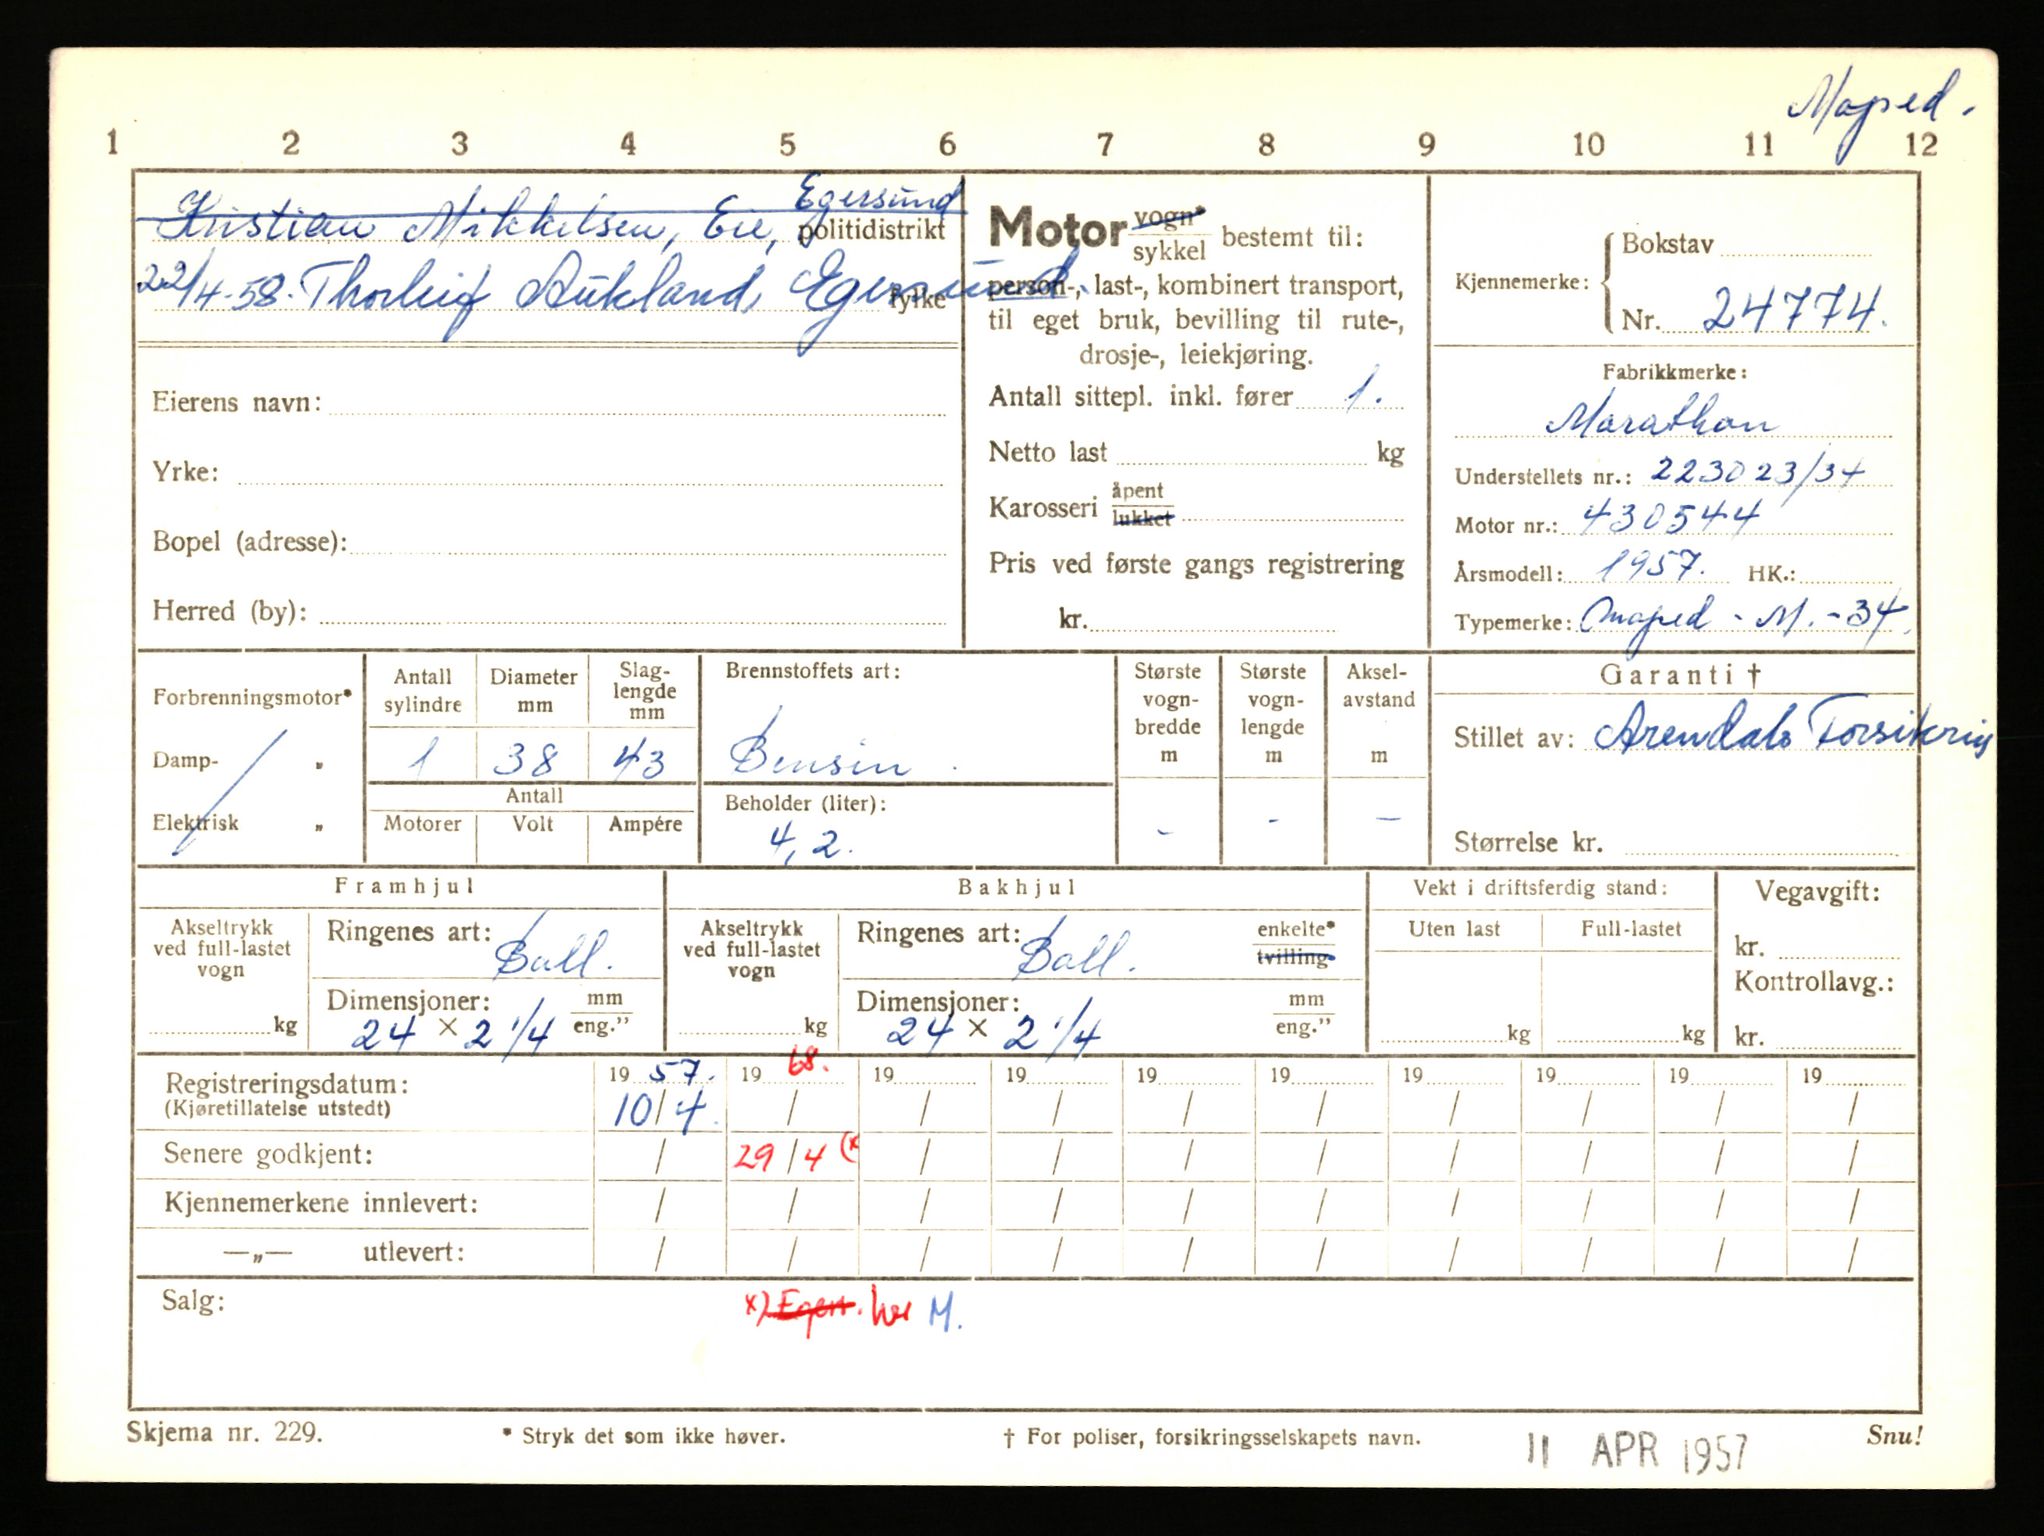 Moped.
1 2 3 4 5 6 7 8 9 10 11 12
Egersund
Kristian Mikkelsen, Eie, politidistrikt
22/4-58. Thorleif Aukland, Egersund. fylke
Eierens navn:
Yrke:
Bopel (adresse):
Herred (by):
Motor vogn* sykkel bestemt til:
person-, last-, kombinert transport,
til eget bruk, bevilling til rute-,
drosje-, leiekjøring.
Antall sittepl. inkl. fører 1.
Netto last kg
Karosseri åpent lukket
Pris ved første gangs registrering
kr.
Kjennemerke: Bokstav
Nr. 24774.
Fabrikkmerke:
Marathon
Understellets nr.: 223023/34
Motor nr.: 430544
Årsmodell: 1957. HK.:
Typemerke: moped - M. - 34.
Forbrenningsmotor*
Damp- „
Elektrisk „
Antall sylindre Diameter mm Slag-lengde mm
1 38 43
Antall
Motorer Volt Ampére
Brennstoffets art:
Bensin.
Beholder (liter):
4,2.
Største vogn-bredde m Største vogn-lengde m Aksel-avstand m
- - -
Garanti †
Stillet av: Arendals Forsikring
Størrelse kr.
Framhjul
Akseltrykk ved full-lastet vogn
kg
Ringenes art: Ball.
Dimensjoner: mm eng.”
24 × 2 1/4
Bakhjul
Akseltrykk ved full-lastet vogn
kg
Ringenes art: Ball. enkelte* tvilling
Dimensjoner: mm eng.”
24 × 2 1/4
Vekt i driftsferdig stand:
Uten last Full-lastet
kg kg
Vegavgift:
kr.
Kontrollavg.:
kr.
Registreringsdatum: 19 57. 19 68. 19 19 19 19 19 19 19 19
(Kjøretillatelse utstedt) 10/4. / / / / / / / / /
Senere godkjent: / 29/4 (x / / / / / / / /
Kjennemerkene innlevert: / / / / / / / / / /
—„— utlevert: / / / / / / / / / /
Salg: x) Egers. her M.
Skjema nr. 229. * Stryk det som ikke høver. † For poliser, forsikringsselskapets navn. Snu!
11 APR 1957